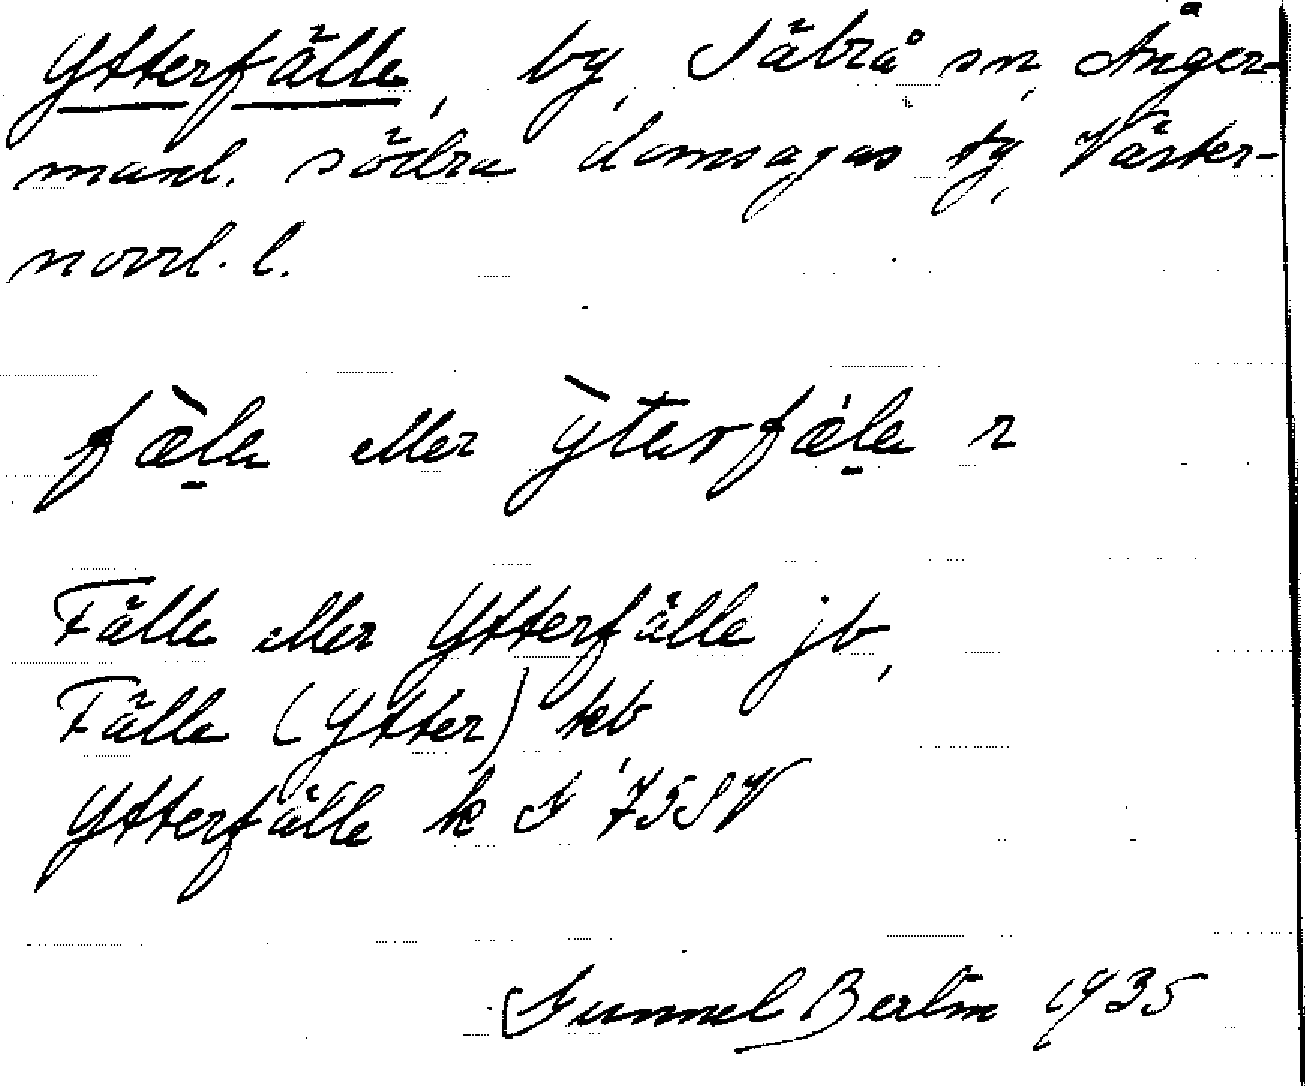 Ytterfälle, by, Säbrå sn, Ånger-
manl. södra domsagas tg, Väster-
norrl. l.
fæ̀lα eller ỳtərfǽlα r
Fälle eller Ytterfälle jb,
Fälle (Ytter) kb
Ytterfälle k S 75 SV
Gunnel Berlin 1935